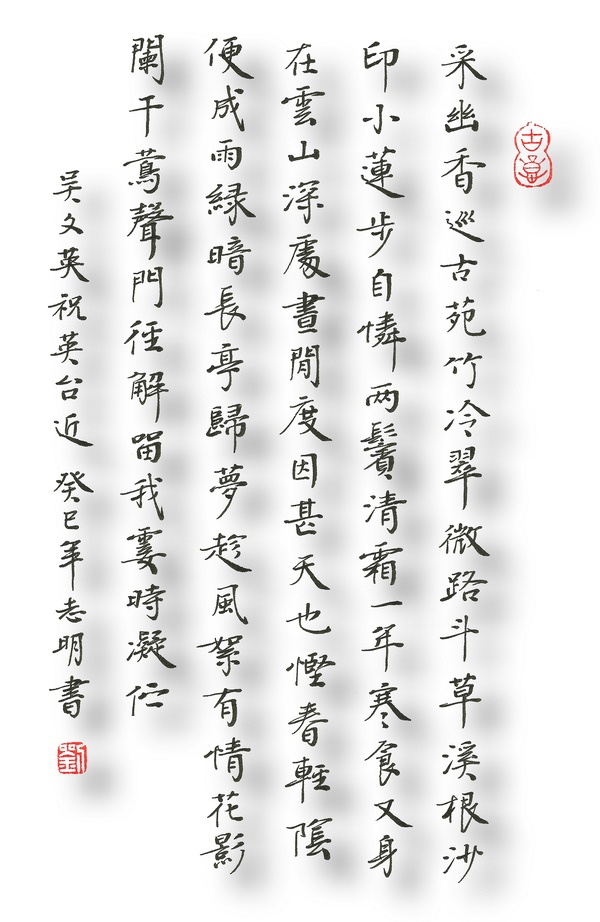 采幽香巡古苑竹冷翠微路斗草溪根沙
印小蓮步自憐两鬢清霜一年寒食又身
在雲山深處晝閒度因甚天也慳春輕陰
便成雨緑暗長亭歸夢趁風絮有情花影
闌干鶯聲門徑解留我霎時凝佇
吴文英祝英台近 癸巳年志明書
劉